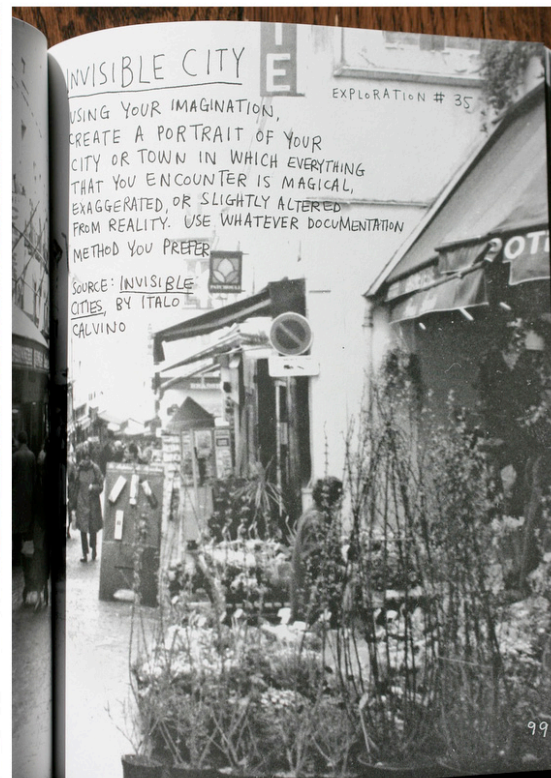 INVISIBLE CITY
EXPLORATION # 35
USING YOUR IMAGINATION,
CREATE A PORTRAIT OF YOUR
CITY OR TOWN IN WHICH EVERYTHING
THAT YOU ENCOUNTER IS MAGICAL,
EXAGGERATED, OR SLIGHTLY ALTERED
FROM REALITY. USE WHATEVER DOCUMENTATION
METHOD YOU PREFER
SOURCE: INVISIBLE
CITIES, BY ITALO
CALVINO
E
POTI
99